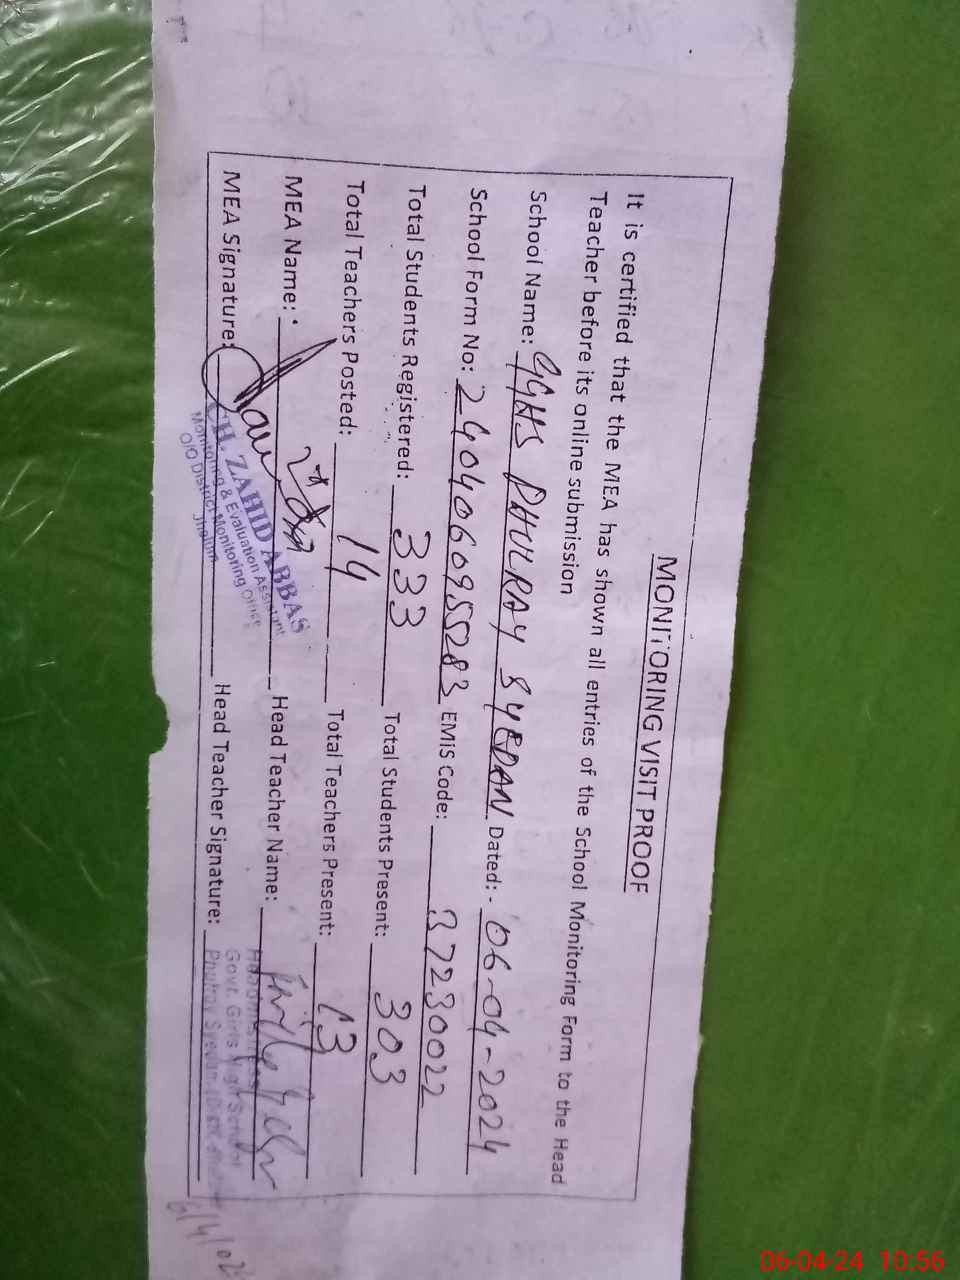 MONITORING VISIT PROOF
It is certified that the MEA has shown all entries of the School Monitoring Form to the Head
Teacher before its online submission
School Name: GGHS PHULRAY SYEDAN Dated:- 06-04-2024
School Form No: 2404060955283 EMIS Code: 37230022
Total Students Registered: 333 Total Students Present: 303
Total Teachers Posted: 14 Total Teachers Present: 13
MEA Name: Head Teacher Name:
MEA Signature: Head Teacher Signature:
CH. ZAHID ABBAS
Monitoring & Evaluation Assistant
O/O District Monitoring Office
Jhelum
Headmistress
Govt. Girls High School
Phulray Syedan
6/4/02
06-04-24 10:56